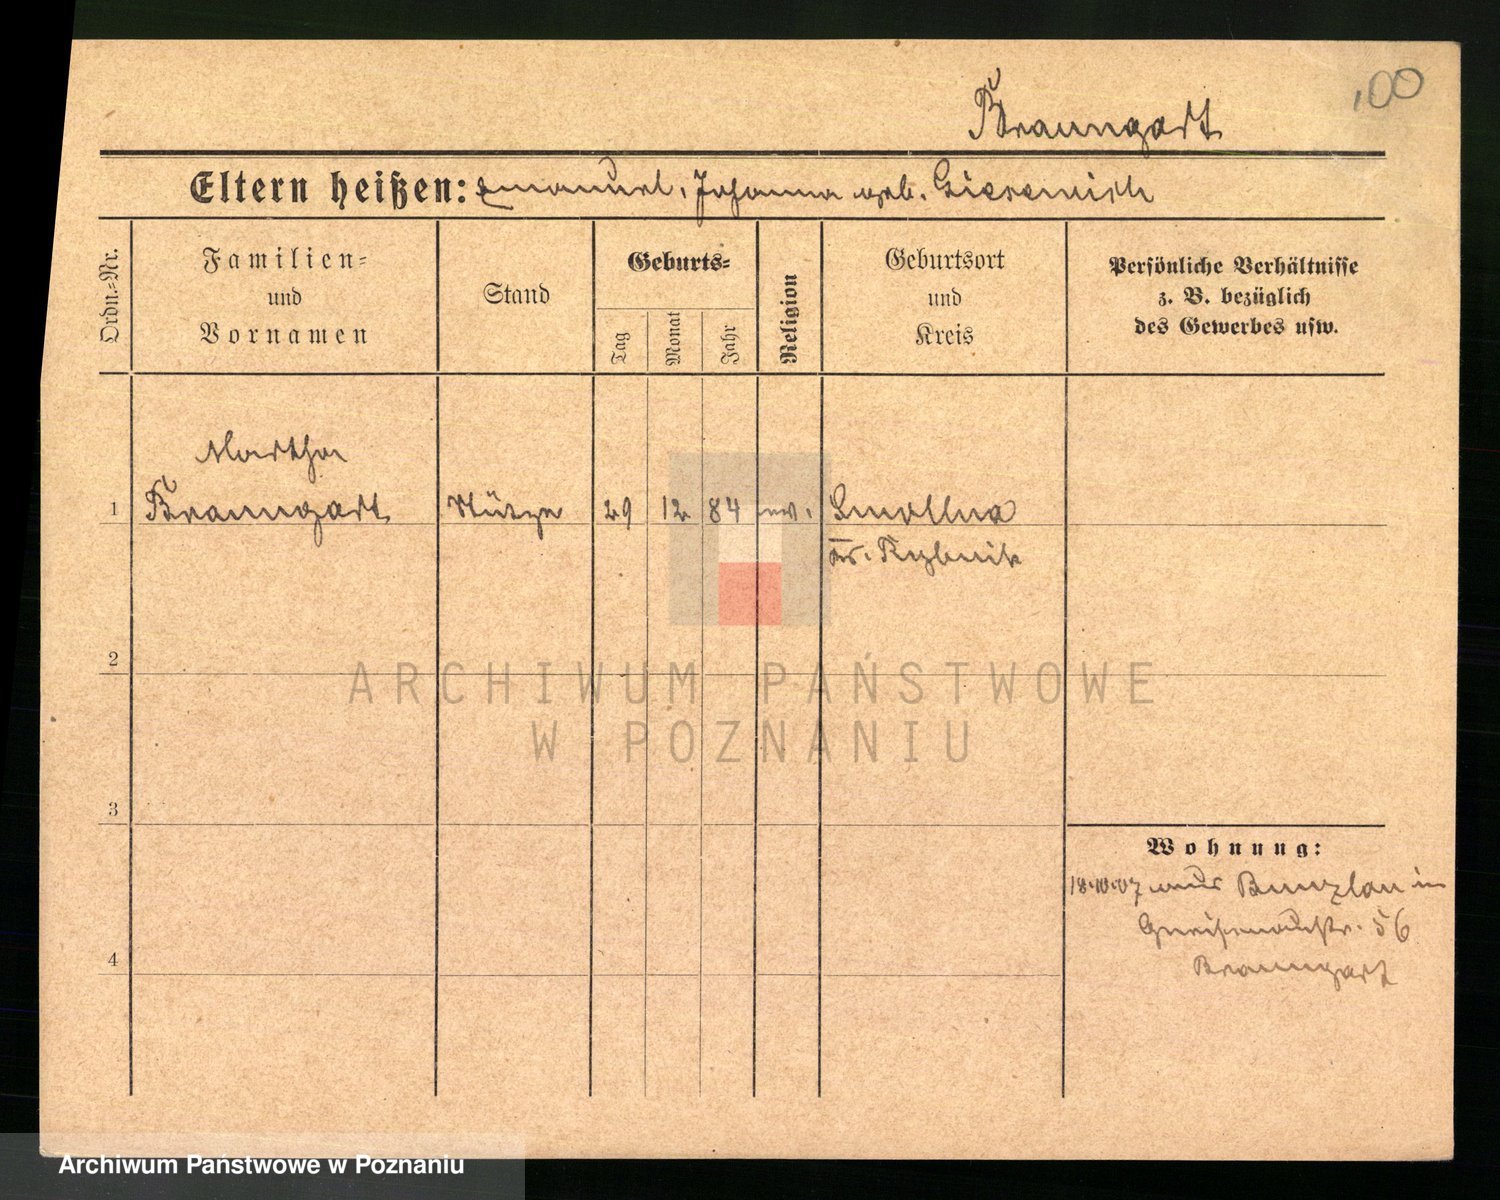 ,00
Braungart
Eltern heißen: Emanuel, Johanna geb.
Ordn.=Nr.
Familien=
und
Vornamen
Stand
Geburts=
Tag
Monat
Jahr
Religion
Geburtsort
und
Kreis
Persönliche Verhältnisse
z. B. bezüglich
des Gewerbes usw.
Martha
1 Braungart Stütze 29 12 84 ev. Smollna
Kr. Rybnik
2
ARCHIWUM PAŃSTWOWE
W POZNANIU
3
Wohnung:
18.10.07 aus Bunzlau in
Gneisenaustr. 56
Braungart
4
Archiwum Państwowe w Poznaniu